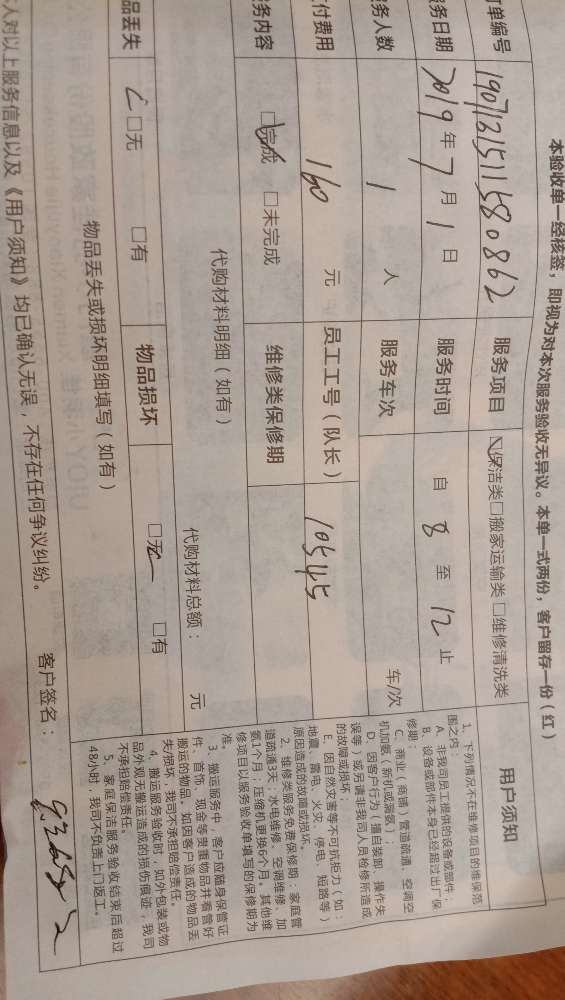 本验收单一经核签，即视为对本次服务验收无异议。本单一式两份，客户留存一份（红）
订单编号 190712151580862 服务项目 保洁类 □搬家运输类 □维修清洗类
服务日期 2019年7月1日 服务时间 自 8 至 12 止
服务人数 1 人 服务车次 车/次
支付费用 160 元 员工工号（队长） 10545
服务内容 □完成 □未完成 维修类保修期
代购材料明细（如有） 代购材料总额： 元
品丢失 □无 □有 物品损坏 □无 □有
物品丢失或损坏明细填写（如有）
本人对以上服务信息以及《用户须知》均已确认无误，不存在任何争议纠纷。 客户签名：
用户须知
1、下列情况不在维修项目的维保范
围之内：
A、非我司员工提供的设备或部件；
B、设备或部件本身已经超过出厂保
修期；
C、商业（商铺）管道疏通、空调空
机加氨（新机或漏氨）；
D、因客户行为（擅自拆卸、操作失
误等）或另请非我司人员检修所造成
的故障或损坏；
E、因自然灾害等不可抗拒力（如：
地震、雷电、火灾、停电、短路等）
原因造成的故障或损坏。
2、维修类服务免费保修期：家庭管
道疏通3天；水电维修、空调维修、加
氨1个月；压缩机更换6个月。其他维
修项目以服务验收单填写的保修期为
准。
3、搬运服务中，客户应随身保管证
件、首饰、现金等贵重物品并看管好
搬运的物品。如因客户造成的物品丢
失/损坏，我司不承担赔偿责任。
4、搬运服务验收时，如外包装或物
品外观无搬运造成的损伤痕迹，我司
不承担赔偿责任。
5、家庭保洁服务验收结束后超过
48小时，我司不负责上门返工。